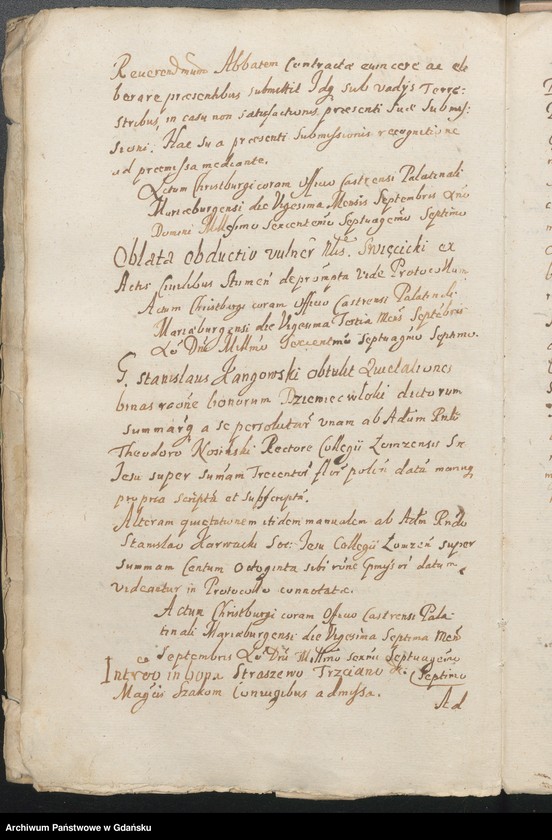 Reverendmum Abbatem Contracta evincere ac
berare praesentibus submittit Idq sub vadys Terre-
stribus in casu non satisfactionis praesenti suae Submis-
sioni. Hac sua praesenti Submissionis recognitione
ad praemissa mediante.
Actum Christburgi coram Officio Castrensi Palatinali
Mariaeburgensi die Vigesima Mensis Septembris Ano
Domini Millesimo Sexcentesimo Septuagesimo Septimo
Oblata obductio vulner Nlis. Swięcicki ex
Actis Civilibus deprompta Vide Protocollum
Actum Christburgi coram Officio Castrensi Palatinali
Mariaeburgensi die Vigesima Tertia Mens Septebris
Ao Dni Millmo Sexcentmo Septuagmo Septimo.
G. Stanislaus Jangowski obtulit Quietationes
binas raõne bonorum dictorum
summarq a se persolutar unam ab Adum Rndo
Theodoro Nosinski Rectore Collegii Lomzensis Sx
Jesu super sumam Trecentor flor polin data manuq
propria scripta et subscripta.
Alteram quietationem itidem manualem ab Adm Rndo
Stanislao Karwacki Soc: Jesu Collegii Lomzen super
summam Centum Octoginta sibi datum
videantur in Protocollo connotatae.
Actum Christburgi coram Officio Castrensi Pala-
tinali Mariaeburgensi die Vigesima Septima Men
Septembris Ao Dni Millmo sexms Septuagesimo
Introo in bona Straszewo Trzciano &. Septimo
Magcis Szakom Coniugibus admissa.
Ad
Archiwum Państwowe w Gdańsku